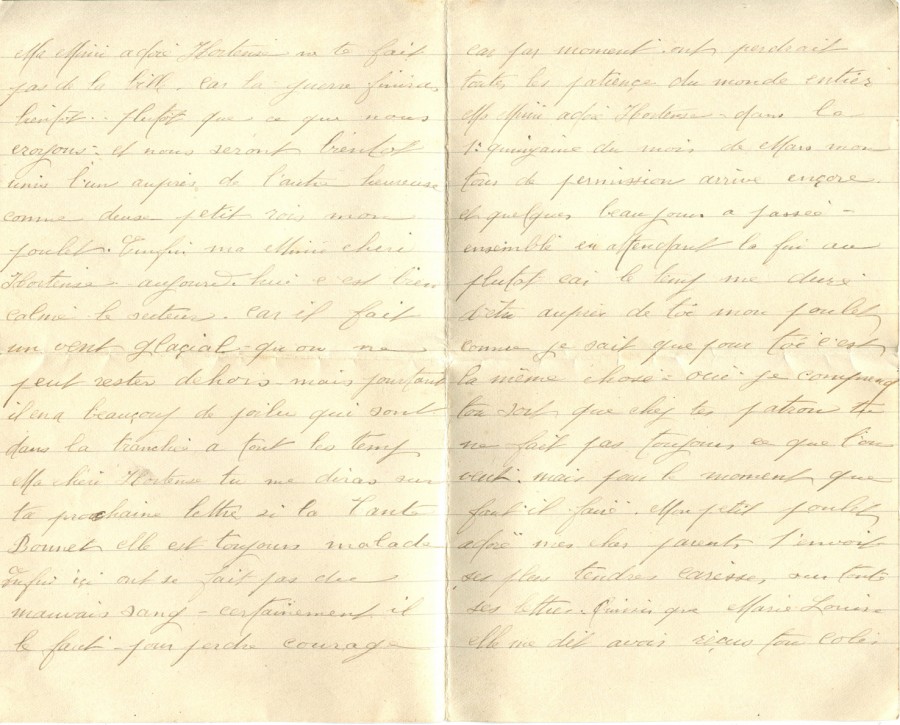 Ma Mimi adoré Hortense ne te fait
pas de la bille. car la guerre finira
bientot. plutot que ce que nous
croyons. et nous seront bientot
unis l'un aupres de l'autre heureuse
comme deux petit rois mon
poulet. Enfin ma Mimi cheri
Hortense - aujourd'hui c'est bien
calme le secteur. car il fait
un vent glaçial - qu'on ne
peut rester dehors mais pourtant
il en a beauçoup de poilu qui sont
dans la tranchée a tout les temp
Ma chéri Hortense tu me diras sur
ta prochaine lettre si la Tante
Bonnet elle est toujours malade
Enfin içi ont se fait pas du
mauvais sang - certainement il
le faut - pour perdre courage
car par moment ont perdrait
toutes les patience du monde entier
Ma Mimi adoré Hortense - dans la
1º quinzaine du mois de Mars mon
tour de permission arrive ençore.
et quelques beau jours a passée -
ensemble en attendant la fin au
plutot car le temp me dure
d'être aupres de toi mon poulet
comme je sait que pour toi c'est
la même chose - oui je comprend
ton sort que chez tes patron tu
ne fait pas toujours ce que l'on
veut. mais pour le moment que
faut'il faire. Mon petit poulet
adoré mes cher parents t'envoit
ses plus tendres caresses, sur toute
ses lettres. que Marie Louise
elle me dit avoir reçus ton colis